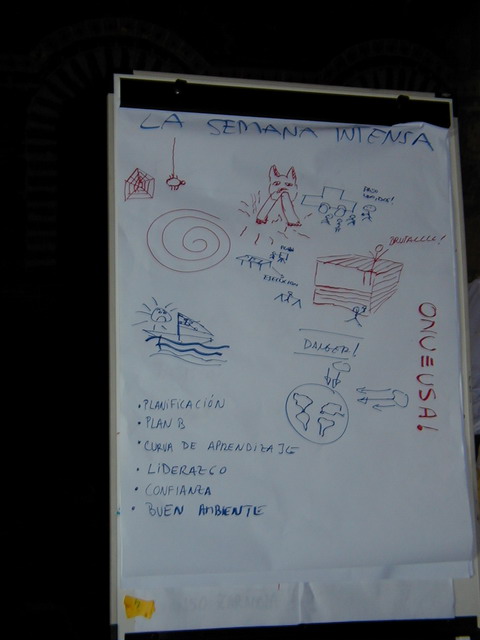 LA SEMANA INTENSA
BRUTALLL!
DANGER!
ONUEUSA!
• PLANIFICACIÓN
• PLAN B
• CURVA DE APRENDIZAJE
• LIDERAZGO
• CONFIANZA
• BUEN AMBIENTE